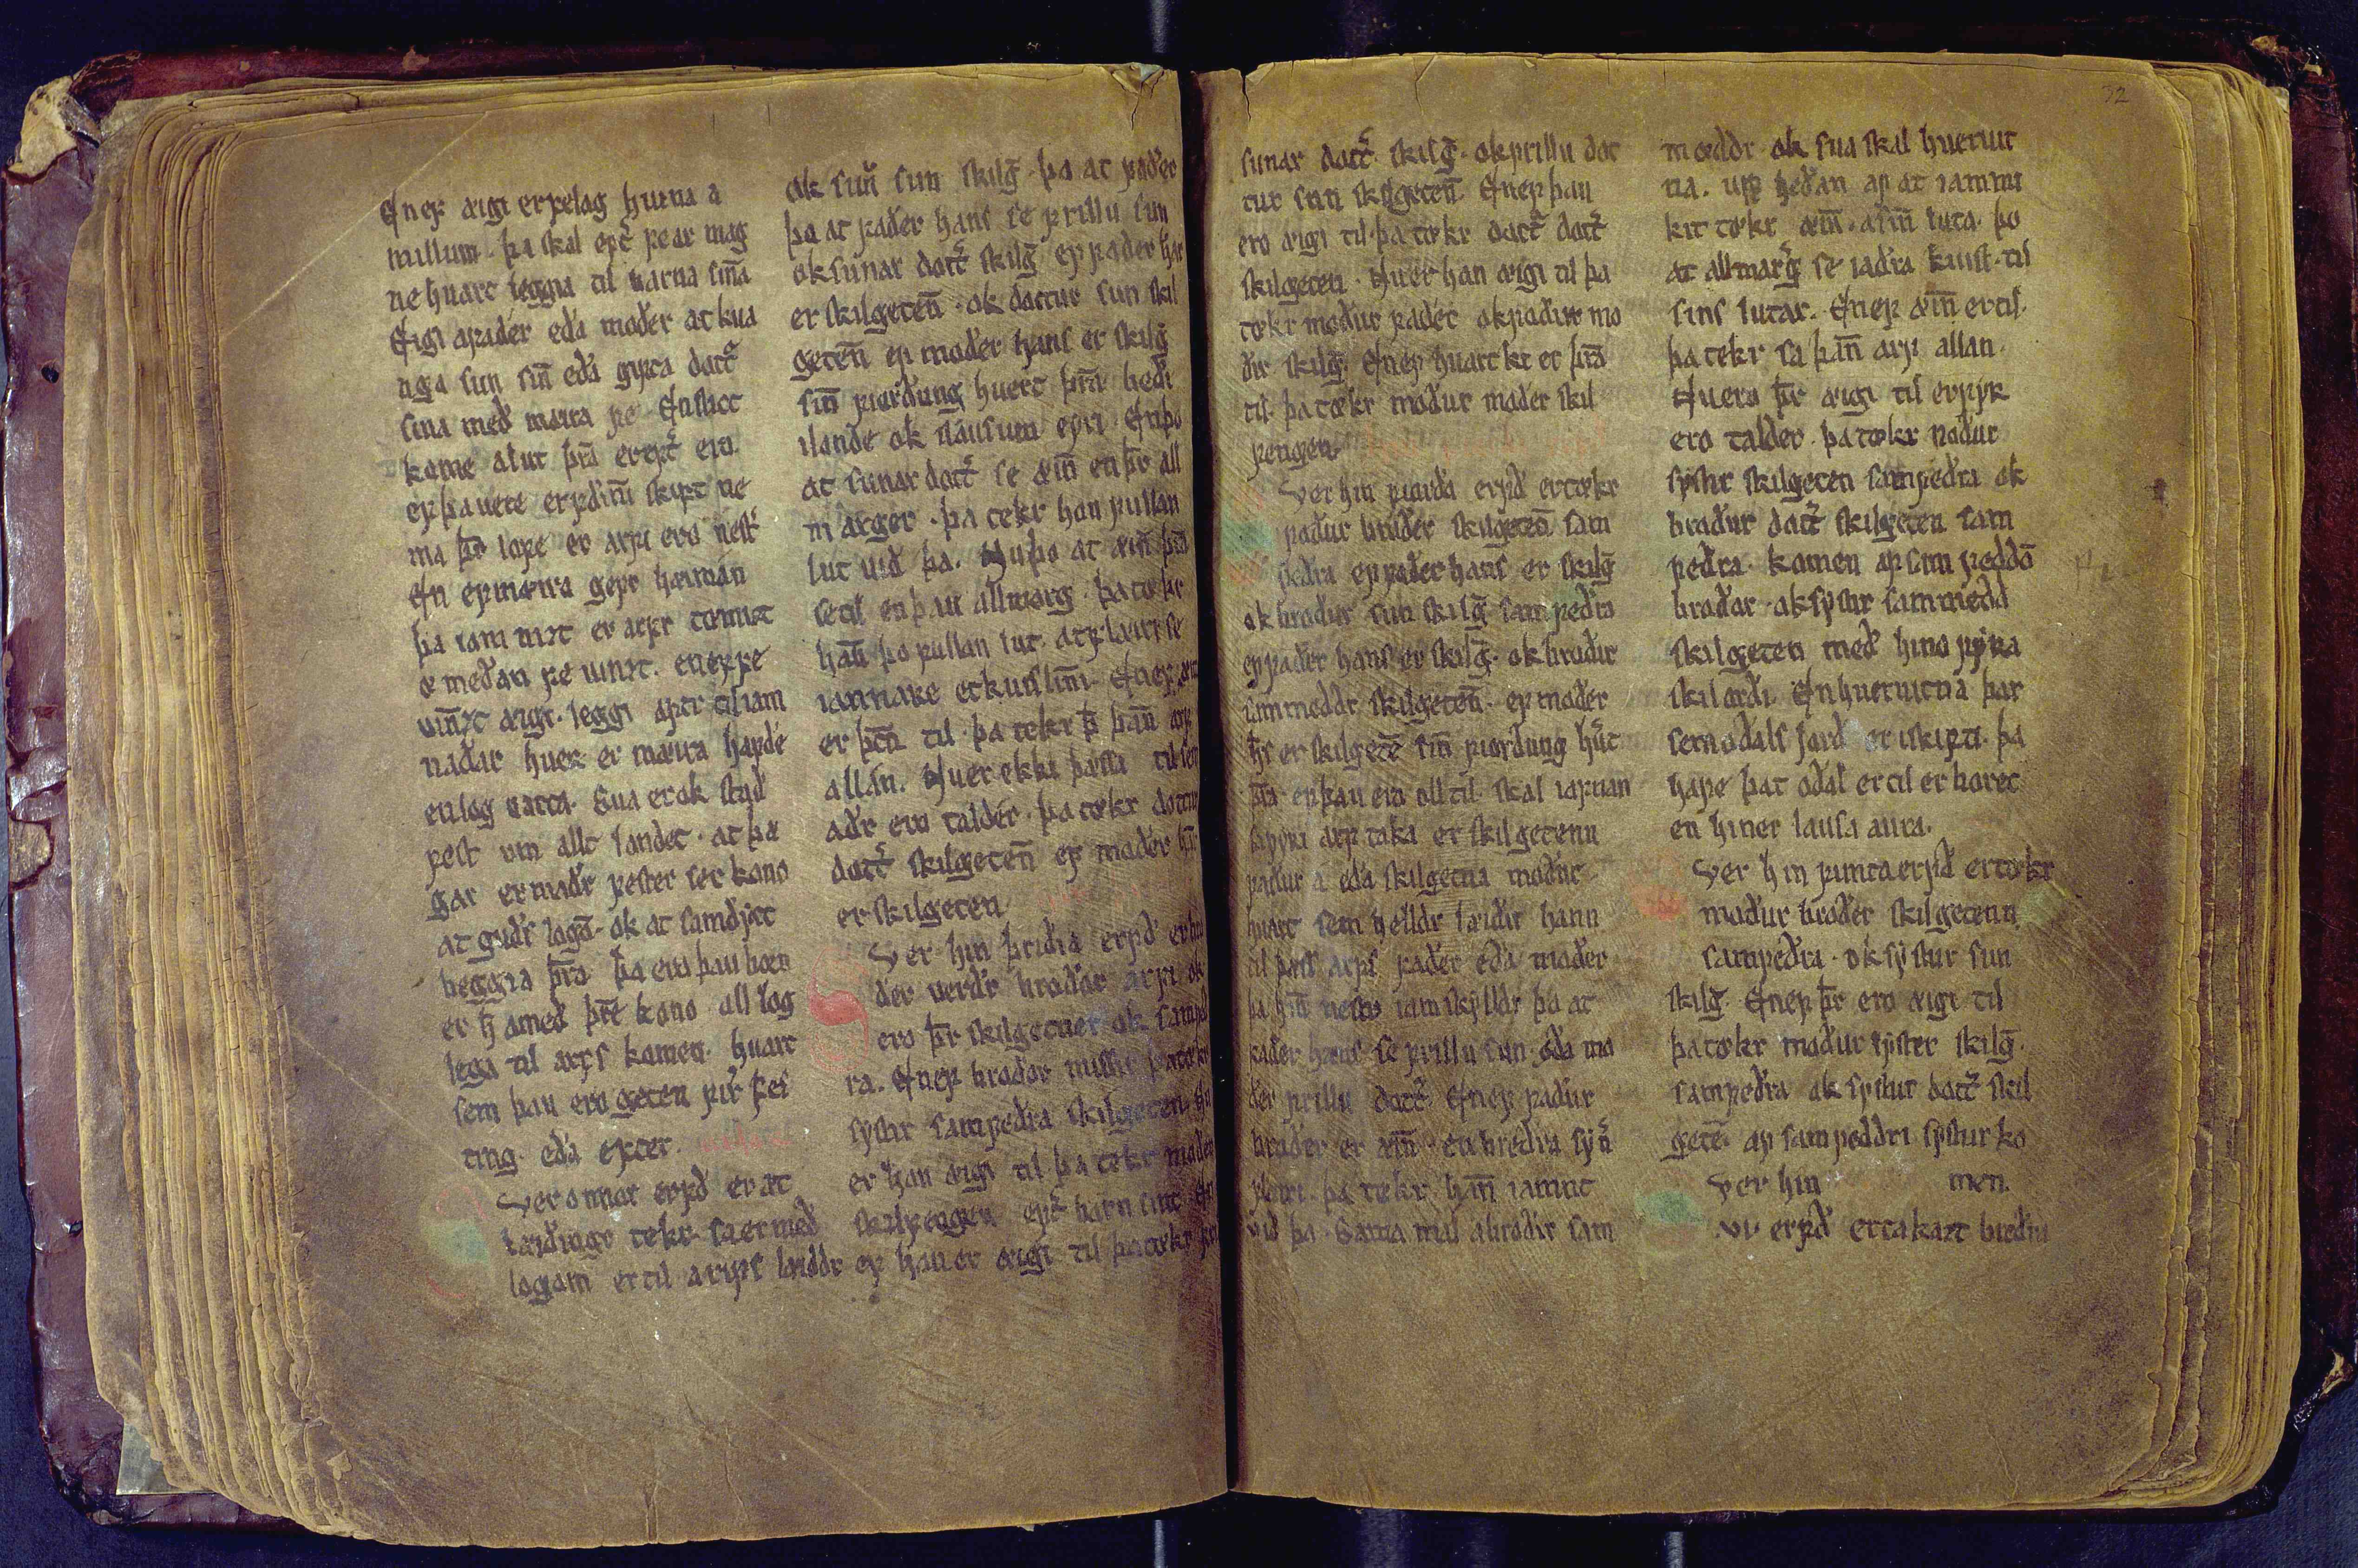 En ef æigi er felag hiuna a
millum. þa skal eptͬ fear mag
ne huart leggia til barna sinna
Eigi a fader eða moder at kua
nga sun sin̅ eða gipta dottͬ
sina með mæira fe En slict
kome a lut þr̅a er eptͬ ero
ef þa uete erfdin̅i skipt ne
ma þr̅ lofe er arfi ero nest
En ef mæira gefr hæiman
þa iam mit er aptr
o meðan fe uinzt. en ef fe
uin̅zt æigi. leggi aptr til iam
naðar huer er mæira hafde
en log uatta. Sua er ok
fest um allt landet. at þa
gar er maðr fester ser kono
at guðs lagu̅. ok at samðyct
beggia þr̅a þa ero þau born
er h̅ a með þr̅e kono all log
lega til arfs komen. huart
sem þau ero geten fir fes
ting. eða epter.
Uer onnor erfð er at
læiðingr tekr. sa er með
logum er til arfs læiddr ef han er æigi til þa tekr
ok sun̅ sun skilg̅. þo at fader
þo at fader hans se frillu sun
ok sunar dottͬ skilg̅ ef fader han̅
er skilgeten̅. ok dottur sun skil
geten̅ ef moder hans er skilg̅
sin̅ fiorðung huert þr̅a bedi
i lande ok i lausum eyri. En þo
at sunar dottͬ se æin̅ en þr̅ all
marger. þa tekr hon fullan
lut uið þa. Nu þo at æin̅ þr̅a
se til en þau allmarg. þa tekr
han̅ þo fullan lut. at flæiri se
iamnare et kuislin̅i. En ef æin
er þr̅a til. þa tekr þ̅ þan̅ arf
allan. Nu er ekki þæssa til sem
aðr ero talder. þa tekr dottur
dottͬ skilgeten̅ ef moder
er skilgeten
Uer hin þriðia erfð er
der uerðr broðor arfi ok
ero þr̅ skilgetner ok samfeð
ra. En ef broðor missir þa tekr
systir samfedra skilgeten. En
er hon æigi til þa tekr moder
skalfengen eptͬ barn sint En
sunar dottͬ. skilg̅. ok frillu dot
tur sun skilgeten̅. En ef þau
ero æigi til. þa tekr dottͬ dottͬ
skilgeten. Nu er hon æigi til þa
tekr moður fader ok foður mo
dir skilg̅. En ef huartki er þr̅a
til. þa tekr moður moder skil
fengen
Uer hin fiorða erfð er tekr
foður broder skilgeten̅ sam
fedra ef fader hans er skilg̅
ok broður sun skilg̅ samfedra
ef fader hans er skilg̅. ok brodir
sammeddr skilgeten̅. ef moder
h̅s er skilgete̅ sin̅ fiorðung hu̅t
þr̅a en þau ero oll til. skal iafnan
fyrri arf taka er skilgetenn
foður a eða skilgetna moður.
huart sem helldr læidir hann
til þess arfs fader eða moder
þa hin̅ neste iamskylldr þo at
fader hans se frillu sun. eða mo
der frillu dottͬ. En ef foður
broder er æin̅. en brædra syn̅
flæiri. þa tekr han̅ iamnt
uið þa. Sama mal a brodir sam
mæddr. ok sua skal huertuit
na. upp heðan af at iammi
kit tekr æin̅. a sin̅ luta. þo
at allmarg̅ se iaðra kuist. til
sins lutar. En ef æin̅ er til.
þa tekr sa þan̅ arf allan.
Nu ero þr̅ æigi til er fyr
ero talder. þa tekr foður
systir skilgeten samfedra ok
broður dottͬ skilgeten sam
fedra. komen af sam feddo̅
broðor. ok systir sammedd
skilgeten með hino fyrra
skilorði. En huervitna þar
sem oðals iorð er i skipti. þa
hafe þat oðal er til er boret
en hiner lausa aura.
Uer hin fimta erfð er tekr
moður broder skilgetenn
samfedra. ok systur sun
skilg̅. En ef þr̅ ero æigi til
þa tekr moður syster skilg̅.
samfedra ok systur dottͬ skil
gete̅. af samfeddri systur ko
men.
Uer hin
.vi. erfð er takazt brædra
32